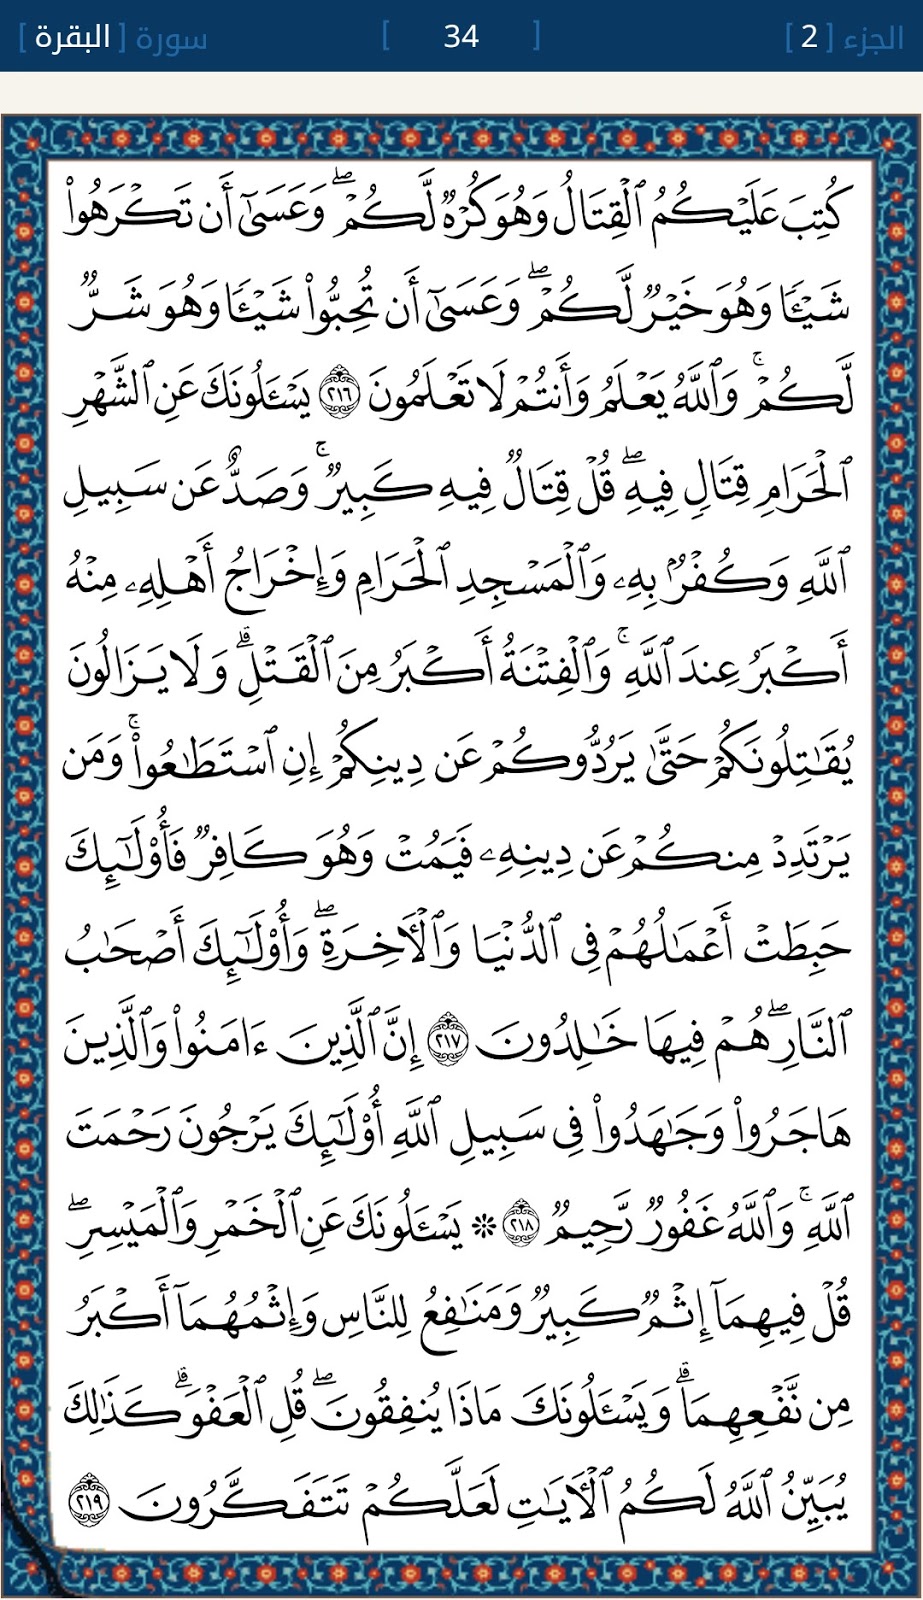 الجزء [ 2 ] [ 34 ] سورة [ البقرة ]
كُتِبَ عَلَيْكُمُ ٱلْقِتَالُ وَهُوَ كُرْهٌ لَّكُمْ ۖ وَعَسَىٰٓ أَن تَكْرَهُوا۟
شَيْـًٔا وَهُوَ خَيْرٌ لَّكُمْ ۖ وَعَسَىٰٓ أَن تُحِبُّوا۟ شَيْـًٔا وَهُوَ شَرٌّ
لَّكُمْ ۚ وَٱللَّهُ يَعْلَمُ وَأَنتُمْ لَا تَعْلَمُونَ ٢١٦ يَسْـَٔلُونَكَ عَنِ ٱلشَّهْرِ
ٱلْحَرَامِ قِتَالٍ فِيهِ ۖ قُلْ قِتَالٌ فِيهِ كَبِيرٌ ۚ وَصَدٌّ عَن سَبِيلِ
ٱللَّهِ وَكُفْرٌۢ بِهِۦ وَٱلْمَسْجِدِ ٱلْحَرَامِ وَإِخْرَاجُ أَهْلِهِۦ مِنْهُ
أَكْبَرُ عِندَ ٱللَّهِ ۚ وَٱلْفِتْنَةُ أَكْبَرُ مِنَ ٱلْقَتْلِ ۗ وَلَا يَزَالُونَ
يُقَـٰتِلُونَكُمْ حَتَّىٰ يَرُدُّوكُمْ عَن دِينِكُمْ إِنِ ٱسْتَطَـٰعُوا۟ ۚ وَمَن
يَرْتَدِدْ مِنكُمْ عَن دِينِهِۦ فَيَمُتْ وَهُوَ كَافِرٌ فَأُو۟لَـٰٓئِكَ
حَبِطَتْ أَعْمَـٰلُهُمْ فِى ٱلدُّنْيَا وَٱلْـَٔاخِرَةِ ۖ وَأُو۟لَـٰٓئِكَ أَصْحَـٰبُ
ٱلنَّارِ ۖ هُمْ فِيهَا خَـٰلِدُونَ ٢١٧ إِنَّ ٱلَّذِينَ ءَامَنُوا۟ وَٱلَّذِينَ
هَاجَرُوا۟ وَجَـٰهَدُوا۟ فِى سَبِيلِ ٱللَّهِ أُو۟لَـٰٓئِكَ يَرْجُونَ رَحْمَتَ
ٱللَّهِ ۚ وَٱللَّهُ غَفُورٌ رَّحِيمٌ ٢١٨ * يَسْـَٔلُونَكَ عَنِ ٱلْخَمْرِ وَٱلْمَيْسِرِ ۖ
قُلْ فِيهِمَآ إِثْمٌ كَبِيرٌ وَمَنَـٰفِعُ لِلنَّاسِ وَإِثْمُهُمَآ أَكْبَرُ
مِن نَّفْعِهِمَا ۗ وَيَسْـَٔلُونَكَ مَاذَا يُنفِقُونَ ۖ قُلِ ٱلْعَفْوَ ۗ كَذَٰلِكَ
يُبَيِّنُ ٱللَّهُ لَكُمُ ٱلْـَٔايَـٰتِ لَعَلَّكُمْ تَتَفَكَّرُونَ ٢١٩